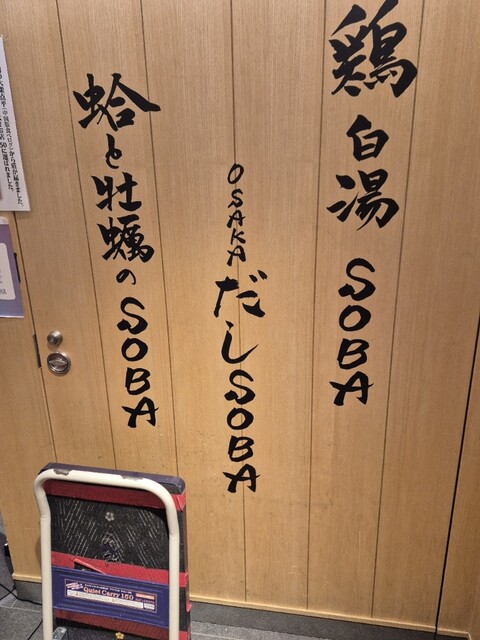 鶏白湯SOBA
OSAKAだしSOBA
蛤と牡蠣のSOBA
Quiet Carry 150